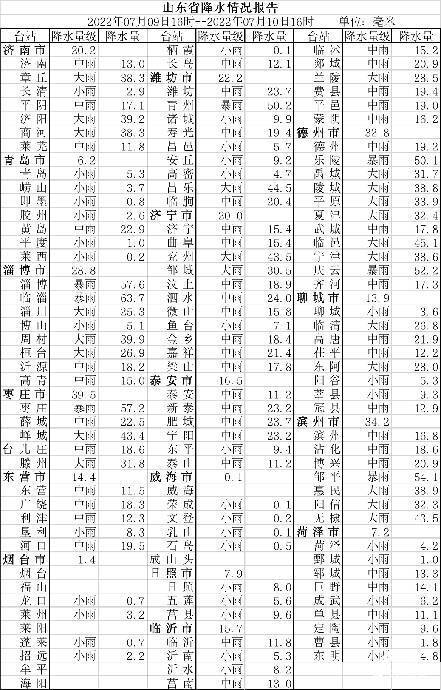 山东省降水情况报告
2022年07月09日16时--2022年07月10日16时 单位：毫米
台站 降水量级 降水量 台站 降水量级 降水量 台站 降水量级 降水量
济南市 20.2 栖霞 小雨 0.1 临沭 中雨 15.2
济南 中雨 13.0 长岛 中雨 12.1 郯城 中雨 20.9
章丘 大雨 38.3 潍坊市 22.2 兰陵 大雨 28.5
长清 小雨 2.9 潍坊 中雨 23.7 费县 中雨 19.4
平阴 中雨 17.1 青州 暴雨 50.2 平邑 中雨 19.0
济阳 大雨 39.2 诸城 小雨 9.9 蒙阴 中雨 16.2
商河 大雨 38.3 寿光 中雨 19.4 德州市 32.8
莱芜 中雨 11.8 昌邑 小雨 5.7 德州 中雨 19.2
青岛市 6.2 安丘 小雨 9.2 乐陵 暴雨 50.1
青岛 小雨 5.3 高密 小雨 4.7 禹城 大雨 31.7
崂山 小雨 3.7 昌乐 大雨 44.5 陵城 大雨 38.8
即墨 小雨 0.8 临朐 中雨 20.4 平原 大雨 33.9
胶州 小雨 2.6 济宁市 20.0 夏津 大雨 32.4
黄岛 中雨 22.9 济宁 中雨 15.4 武城 中雨 17.8
平度 小雨 1.0 曲阜 中雨 15.4 临邑 大雨 45.1
莱西 小雨 0.2 兖州 大雨 43.5 宁津 大雨 38.6
淄博市 28.8 邹城 大雨 30.5 庆云 暴雨 52.2
淄博 暴雨 57.6 汶上 中雨 18.9 齐河 中雨 17.3
临淄 暴雨 63.7 泗水 中雨 24.0 聊城市 13.9
淄川 大雨 25.3 微山 中雨 15.8 聊城 小雨 3.6
博山 小雨 5.1 鱼台 小雨 7.1 临清 大雨 26.8
周村 大雨 39.9 金乡 中雨 18.4 高唐 中雨 21.9
桓台 大雨 26.9 嘉祥 中雨 21.4 茌平 中雨 12.2
沂源 中雨 18.2 梁山 中雨 17.8 东阿 大雨 28.0
高青 中雨 15.0 泰安市 16.5 阳谷 小雨 5.3
枣庄市 39.5 泰安 中雨 11.2 莘县 小雨 9.3
枣庄 暴雨 57.2 新泰 中雨 23.2 冠县 中雨 12.9
薛城 中雨 22.5 肥城 中雨 23.7 滨州市 34.2
峄城 大雨 43.4 宁阳 中雨 23.2 滨州 中雨 16.8
台儿庄 中雨 18.6 东平 小雨 9.4 沾化 中雨 18.6
滕州 大雨 31.8 泰山 中雨 11.2 博兴 中雨 20.9
东营市 14.4 威海市 0.1 邹平 暴雨 54.1
东营 中雨 11.5 威海 惠民 大雨 38.9
广饶 中雨 18.3 荣成 小雨 0.1 阳信 大雨 32.3
利津 中雨 12.3 文登 小雨 0.2 无棣 大雨 43.5
垦利 小雨 8.3 乳山 小雨 0.1 菏泽市 7.2
河口 中雨 19.5 石岛 小雨 0.5 菏泽 小雨 4.2
烟台市 1.4 成山头 鄄城 小雨 1.0
烟台 日照市 7.9 郓城 中雨 13.3
福山 日照 小雨 8.0 巨野 中雨 14.1
龙口 小雨 0.7 五莲 小雨 5.6 成武 小雨 6.2
莱州 小雨 3.2 莒县 小雨 9.6 单县 中雨 11.1
莱阳 临沂市 15.7 定陶 小雨 9.6
蓬莱 小雨 0.7 临沂 中雨 11.8 曹县 小雨 1.8
招远 小雨 2.2 沂南 小雨 5.3 东明 小雨 4.8
牟平 沂水 小雨 8.2
海阳 莒南 中雨 13.0